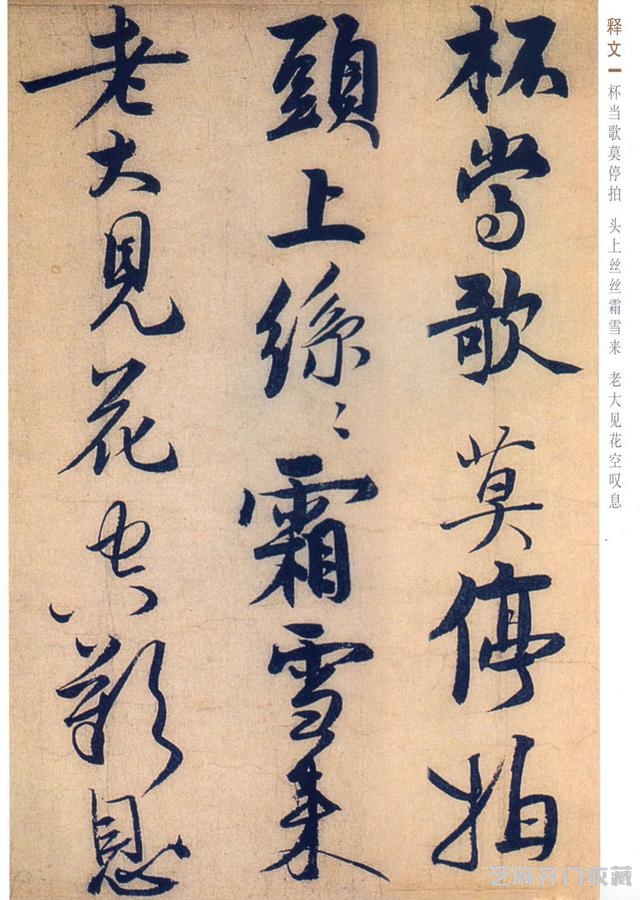 释文
杯当歌莫停拍 头上丝丝霜雪来 老大见花空叹息
杯當歌莫停拍
頭上絲〻霜雪来
老大見花空歎息
芝麻开门收藏